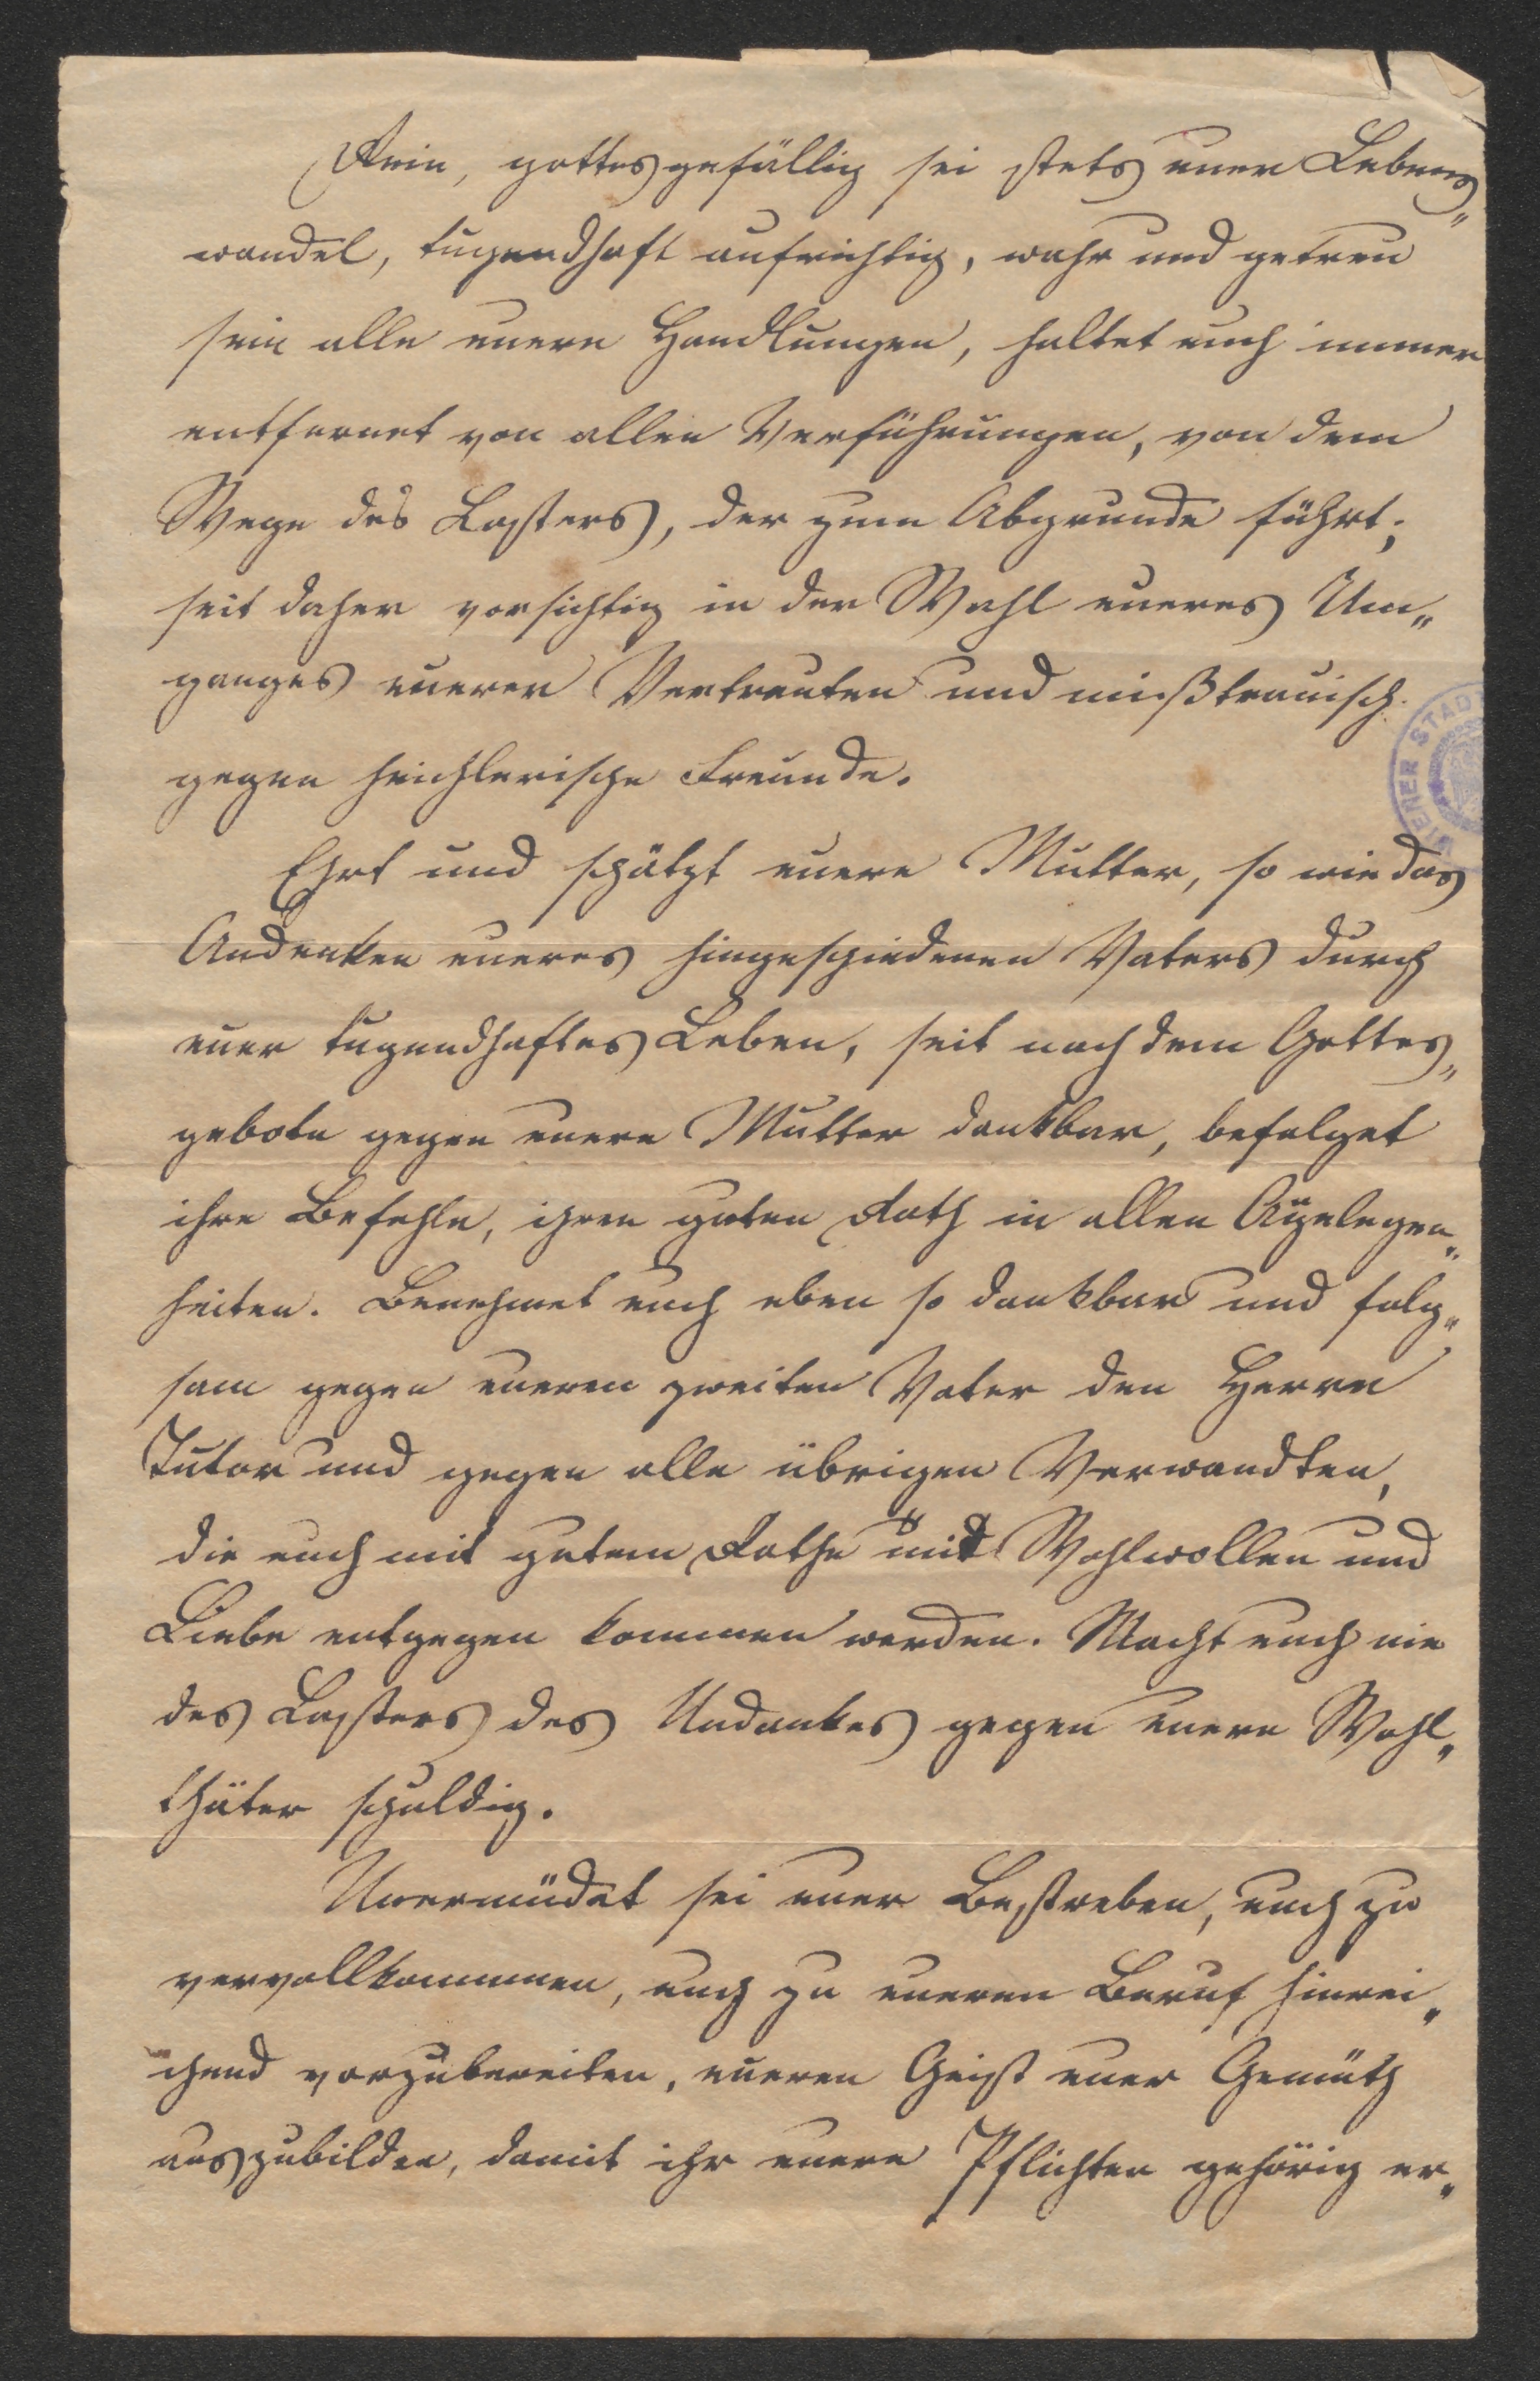 Rein, gottesgefällig sei stets euer Lebens„
wandel, tugendhaft aufrichtig, wahr und getreu
sein alle euere Handlungen, haltet euch immer
entfernet von allen Verführungen, von dem
Wege des Lasters, der zum Abgrunde führt;
seit daher vorsichtig in der Wahl eueres Um„
ganges euerer Vertrauten und mißtrauisch
gegen heichlerische Freunde.
Ehrt und schätzt euere Mutter, so wie das
Andenken eueres hingeschiedenen Vaters durch
euer tugendhaftes Leben, seit nach dem Gottes„
gebote gegen euere Mutter dankbar, befolget
ihre Befehle, ihren guten Rath in allen Angelegen„
heiten. Benehmet euch eben so dankbar und folg„
sam gegen eueren zweiten Vater den Herrn
Tutor und gegen alle übrigen Verwandten,
die euch mit gutem Rathe mit Wohlwollen und
Liebe entgegen kommen werden. Macht euch nie
des Lasters des Undankes gegen euere Wohl„
thäter schuldig.
Unermüdet sei euer Bestreben, euch zu
vervollkommnen, euch zu eueren Beruf hinrei„
chend vorzubereiten, eueren Geist euer Gemüth
auszubilden, damit ihr euere Pflichten gehörig er„
WIENER STAD